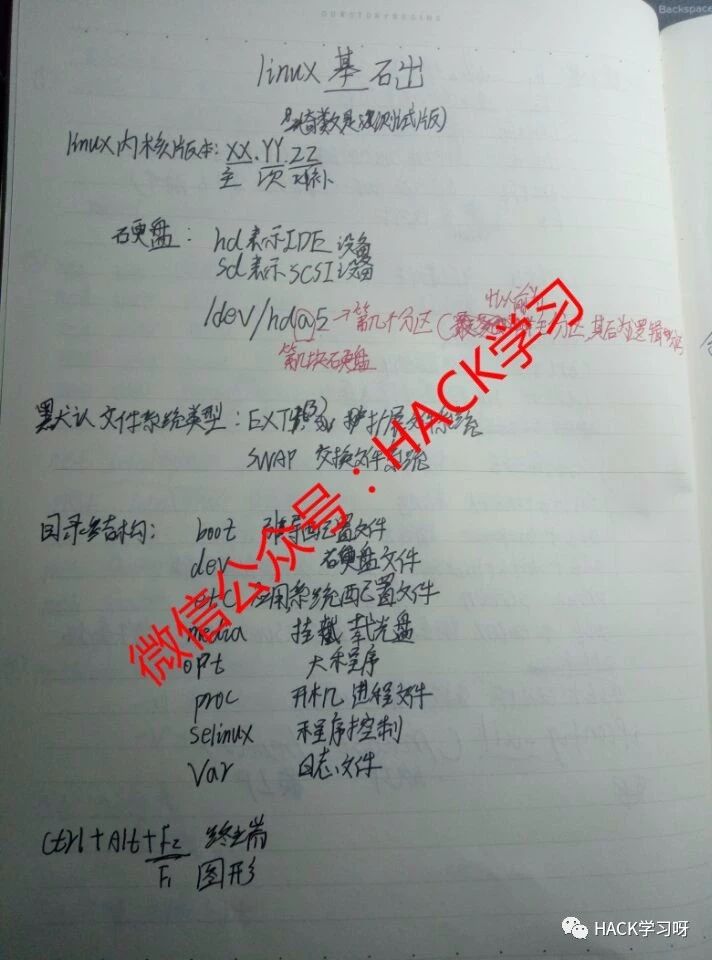 Backspace
OURSTORYBEGINS
linux 基石出
奇数是测试版)
linux内核版本: XX.YY.ZZ
主 次 补
硬盘: hd表示IDE设备
sd表示SCSI设备
/dev/hda5 → 第几个分区 ( 分区,其后为逻辑
第几块硬盘
默认文件系统类型: EXT4(3) 扩展文件系统
SWAP 交换文件系统
目录结构: boot 引导配置文件
dev 硬盘文件
etc 应用系统配置文件
media 挂载 光盘
opt 大程序
proc 开机 进程文件
selinux 程序控制
Var 日志文件
Ctrl+Alt+F2 终端
F1 图形
微信公众号:HACK学习
HACK学习呀